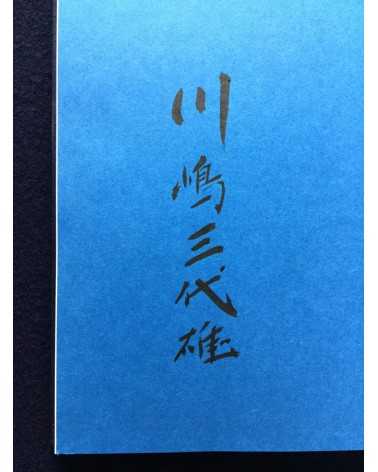 川嶋三代雄